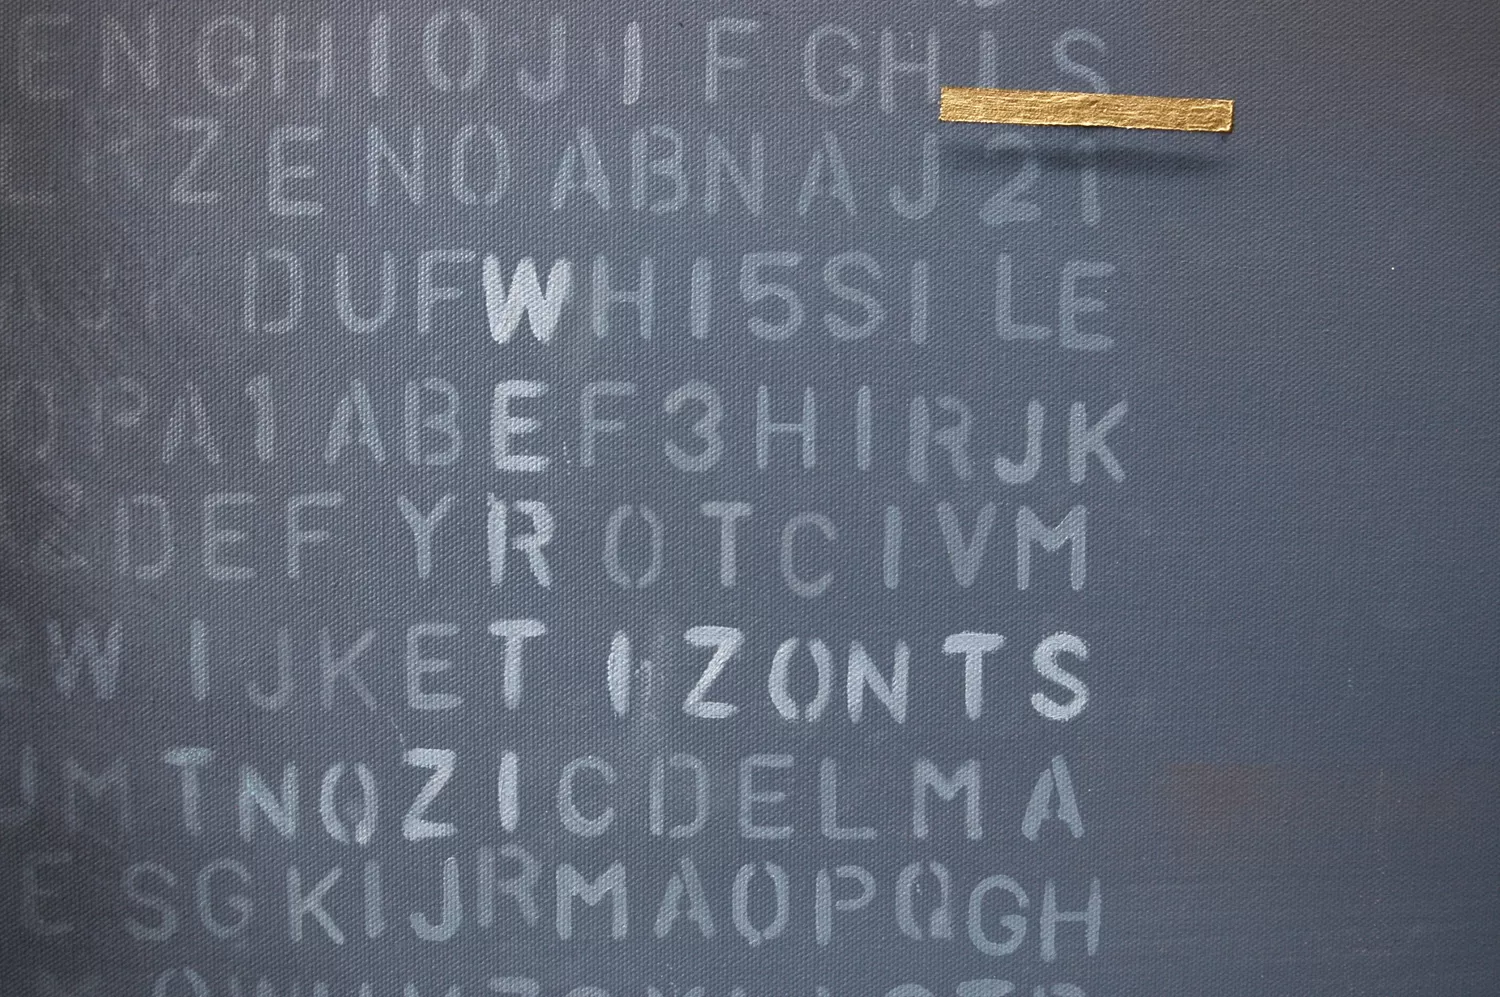 ENGHIOJIFGHIS
ERZENOABNAJ21
DUFWHI5SILE
OPA1ABEF3HIRJK
2DEFYROTCIVM
W IJKET IZONTS
JMTNOZICDELMA
ESGKIJRMAOPQGH